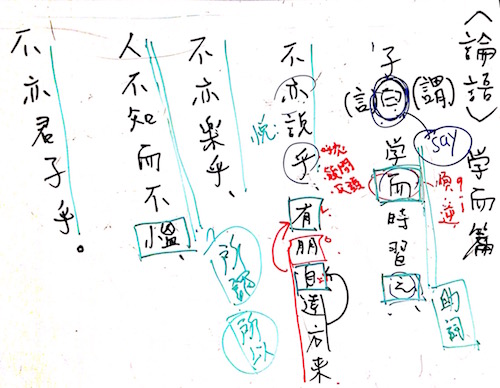 〈論語〉学而篇
子曰学而時習之、
(謂)
(言)
say
順
逆
助詞
不亦説乎
悦
疑問
反語
有朋自遠方来
不亦樂乎、
所謂
所以
人不知而不慍
不亦君子乎。